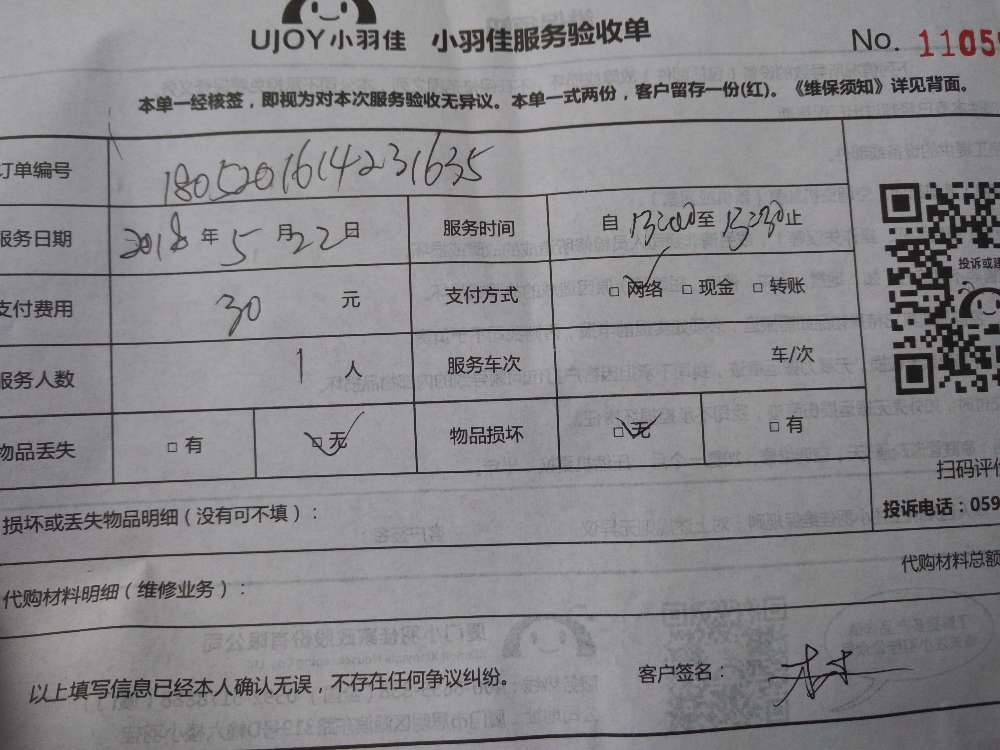 UJOY小羽佳 小羽佳服务验收单 No. 1105
本单一经核签，即视为对本次服务验收无异议。本单一式两份，客户留存一份(红)。《维保须知》详见背面。
订单编号 1805201614231635
服务日期 2018 年 5 月 22 日 服务时间 自 13:00 至 13:30 止
支付费用 30 元 支付方式 □ 网络 □ 现金 □ 转账
服务人数 1 人 服务车次 车/次
物品丢失 □ 有 □ 无 物品损坏 □ 无 □ 有
投诉或建
扫码评价
投诉电话：059
损坏或丢失物品明细（没有可不填）：
代购材料明细（维修业务）： 代购材料总额
以上填写信息已经本人确认无误，不存在任何争议纠纷。 客户签名：